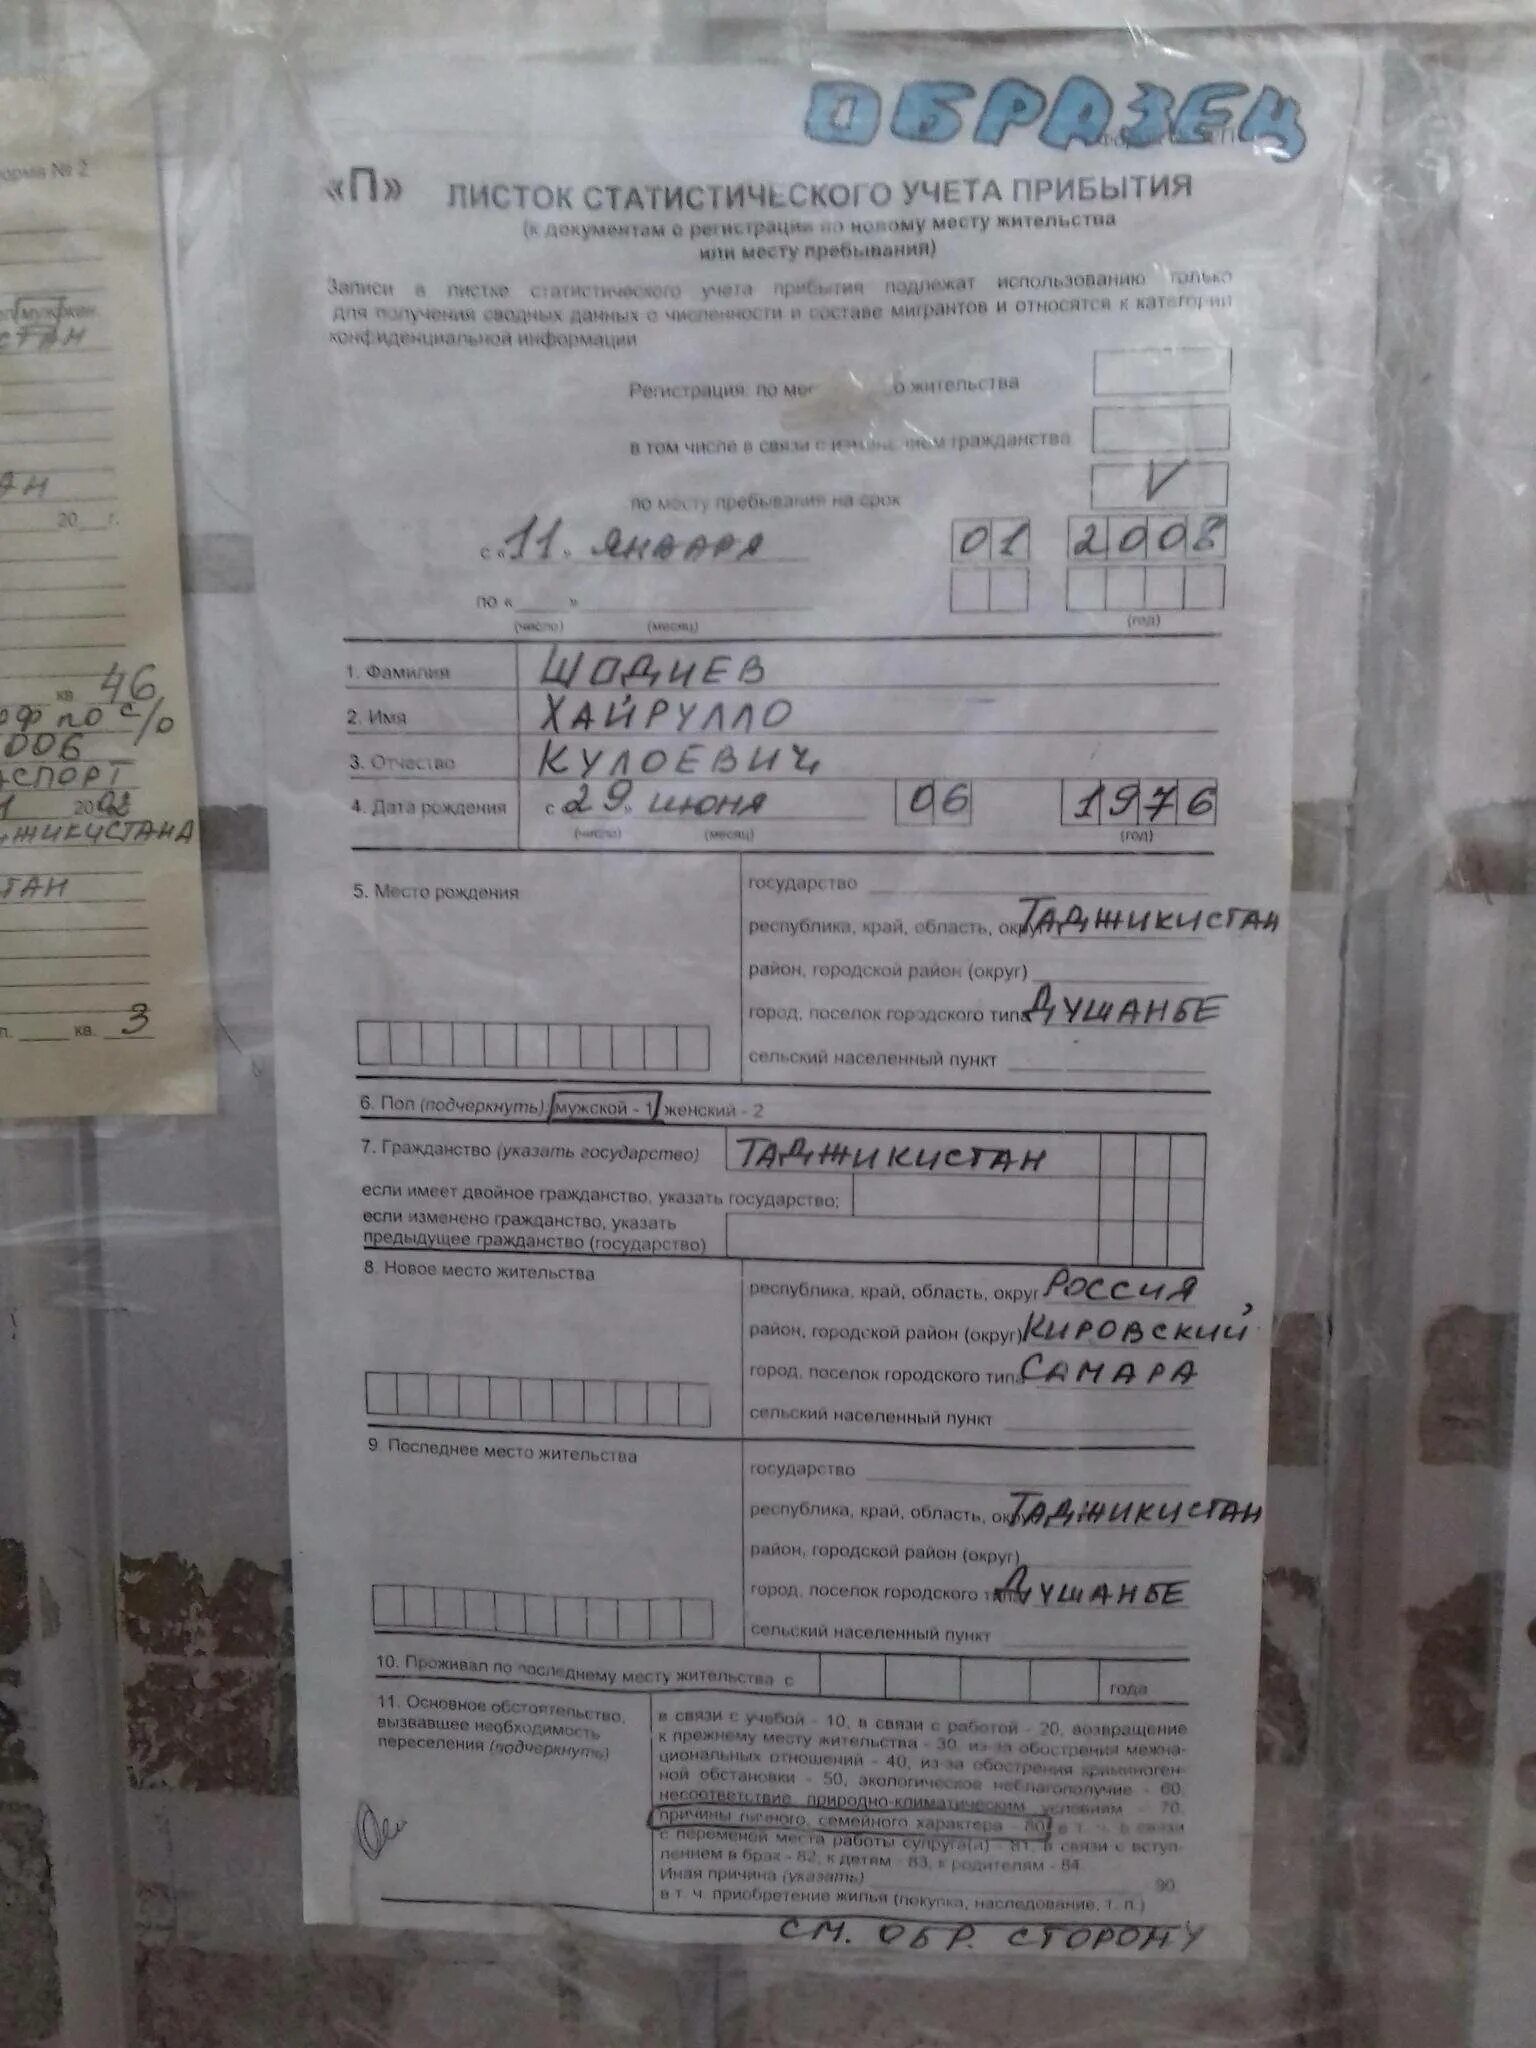 ОБРАЗЕЦ
«П» ЛИСТОК СТАТИСТИЧЕСКОГО УЧЕТА ПРИБЫТИЯ
(к документам о регистрации по новому месту жительства
или месту пребывания)
Записи в листке статистического учета прибытия подлежат использованию только
для получения сводных данных о численности и составе мигрантов и относятся к категории
конфиденциальной информации
Регистрация: по жительства
в том числе в связи с гражданства
по месту пребывания на срок V
с «11» января 01 2008
по « »
(число) (месяц) (год)
1. Фамилия ШОДИЕВ
2. Имя ХАЙРУЛЛО
3. Отчество КУЛОЕВИЧ
4. Дата рождения с 29 » июня 06 1976
(число) (месяц) (год)
5. Место рождения
государство
республика, край, область, округ ТАДЖИКИСТАН
район, городской район (округ)
город, поселок городского типа ДУШАНБЕ
сельский населенный пункт
6. Пол (подчеркнуть) мужской - 1 женский - 2
7. Гражданство (указать государство) ТАДЖИКИСТАН
если имеет двойное гражданство, указать государство;
если изменено гражданство, указать
предыдущее гражданство (государство)
8. Новое место жительства
республика, край, область, округ РОССИЯ
район, городской район (округ) КИРОВСКИЙ
город, поселок городского типа САМАРА
сельский населенный пункт
9. Последнее место жительства
государство
республика, край, область, округ ТАДЖИКИСТАН
район, городской район (округ)
город, поселок городского типа ДУШАНБЕ
сельский населенный пункт
10. Проживал по последнему месту жительства с года
11. Основное обстоятельство,
вызвавшее необходимость
переселения (подчеркнуть)
в связи с учебой - 10, в связи с работой - 20, возвращение
к прежнему месту жительства - 30, из-за обострения межна-
циональных отношений - 40, из-за обострения криминоген-
ной обстановки - 50, экологическое неблагополучие - 60,
несоответствие природно-климатическим условиям - 70,
причины личного, семейного характера - 80, в т. ч. в связи
с переменой места работы супруга(и) - 81, в связи с вступ-
лением в брак - 82, к детям - 83, к родителям - 84
Иная причина (указать) 90
в т. ч. приобретение жилья (покупка, наследование, т. п.)
СМ. ОБР. СТОРОНУ
форма № 2
20 г.
кв 46
по с/о
2002
кв. 3